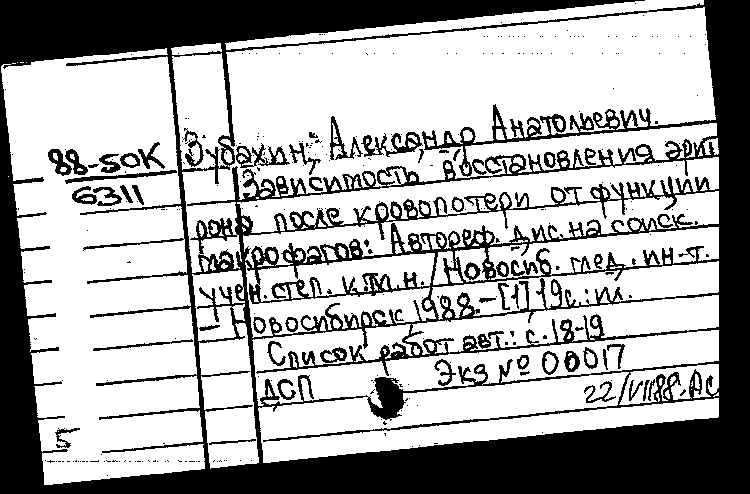 88-50К
6311
Зубахин, Александр Анатольевич.
Зависимость восстановления эрит
рона после кровопотери от функции
макрофагов: Автореф. дис. на соиск.
учен. степ. к.м.н. / Новосиб. мед. ин-т.
– Новосибирск, 1988. – [1] 19с.: ил.
Список работ авт.: с. 18-19
ДСП Экз № 00017
22/VII88. Ас
5